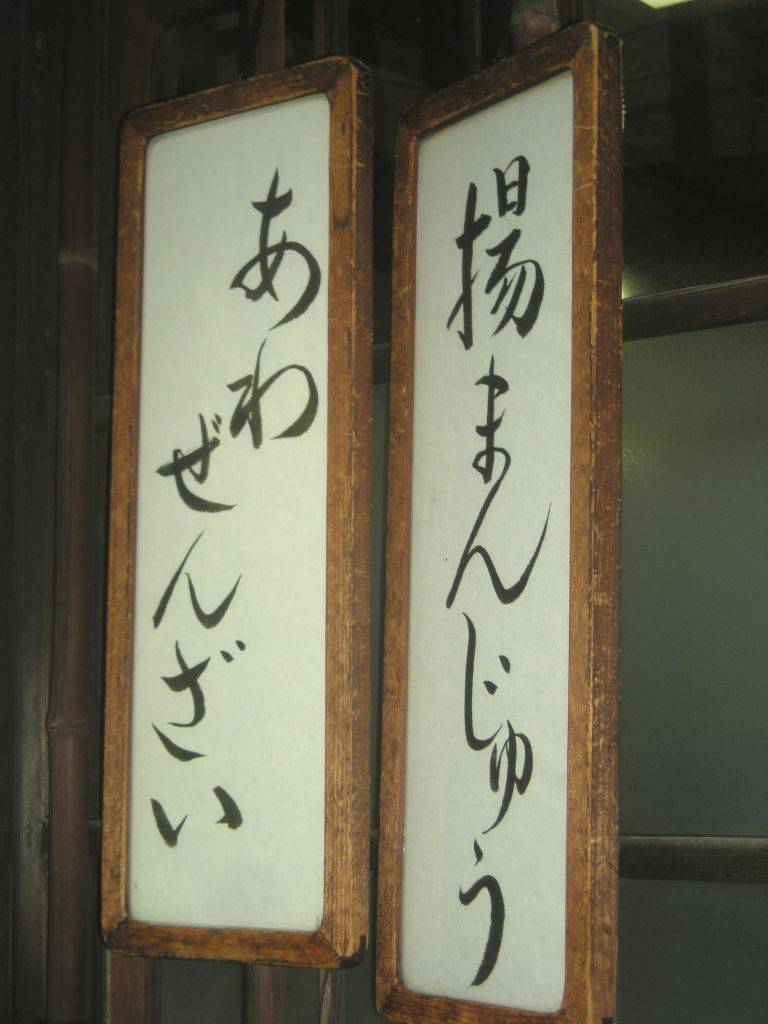 揚まんじゅう
あわ
ぜんざい